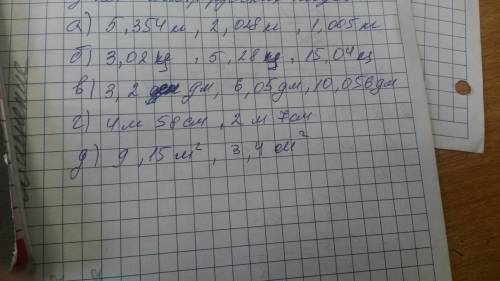 а) 5,354м, 2,028м, 1,005м
б) 3,02кг, 5,28кг, 15,04ц
в) 3,2 дм, 6,05дм, 10,056дм
г) 4м 58см, 2м 7см
д) 9,15м², 3,4 см²